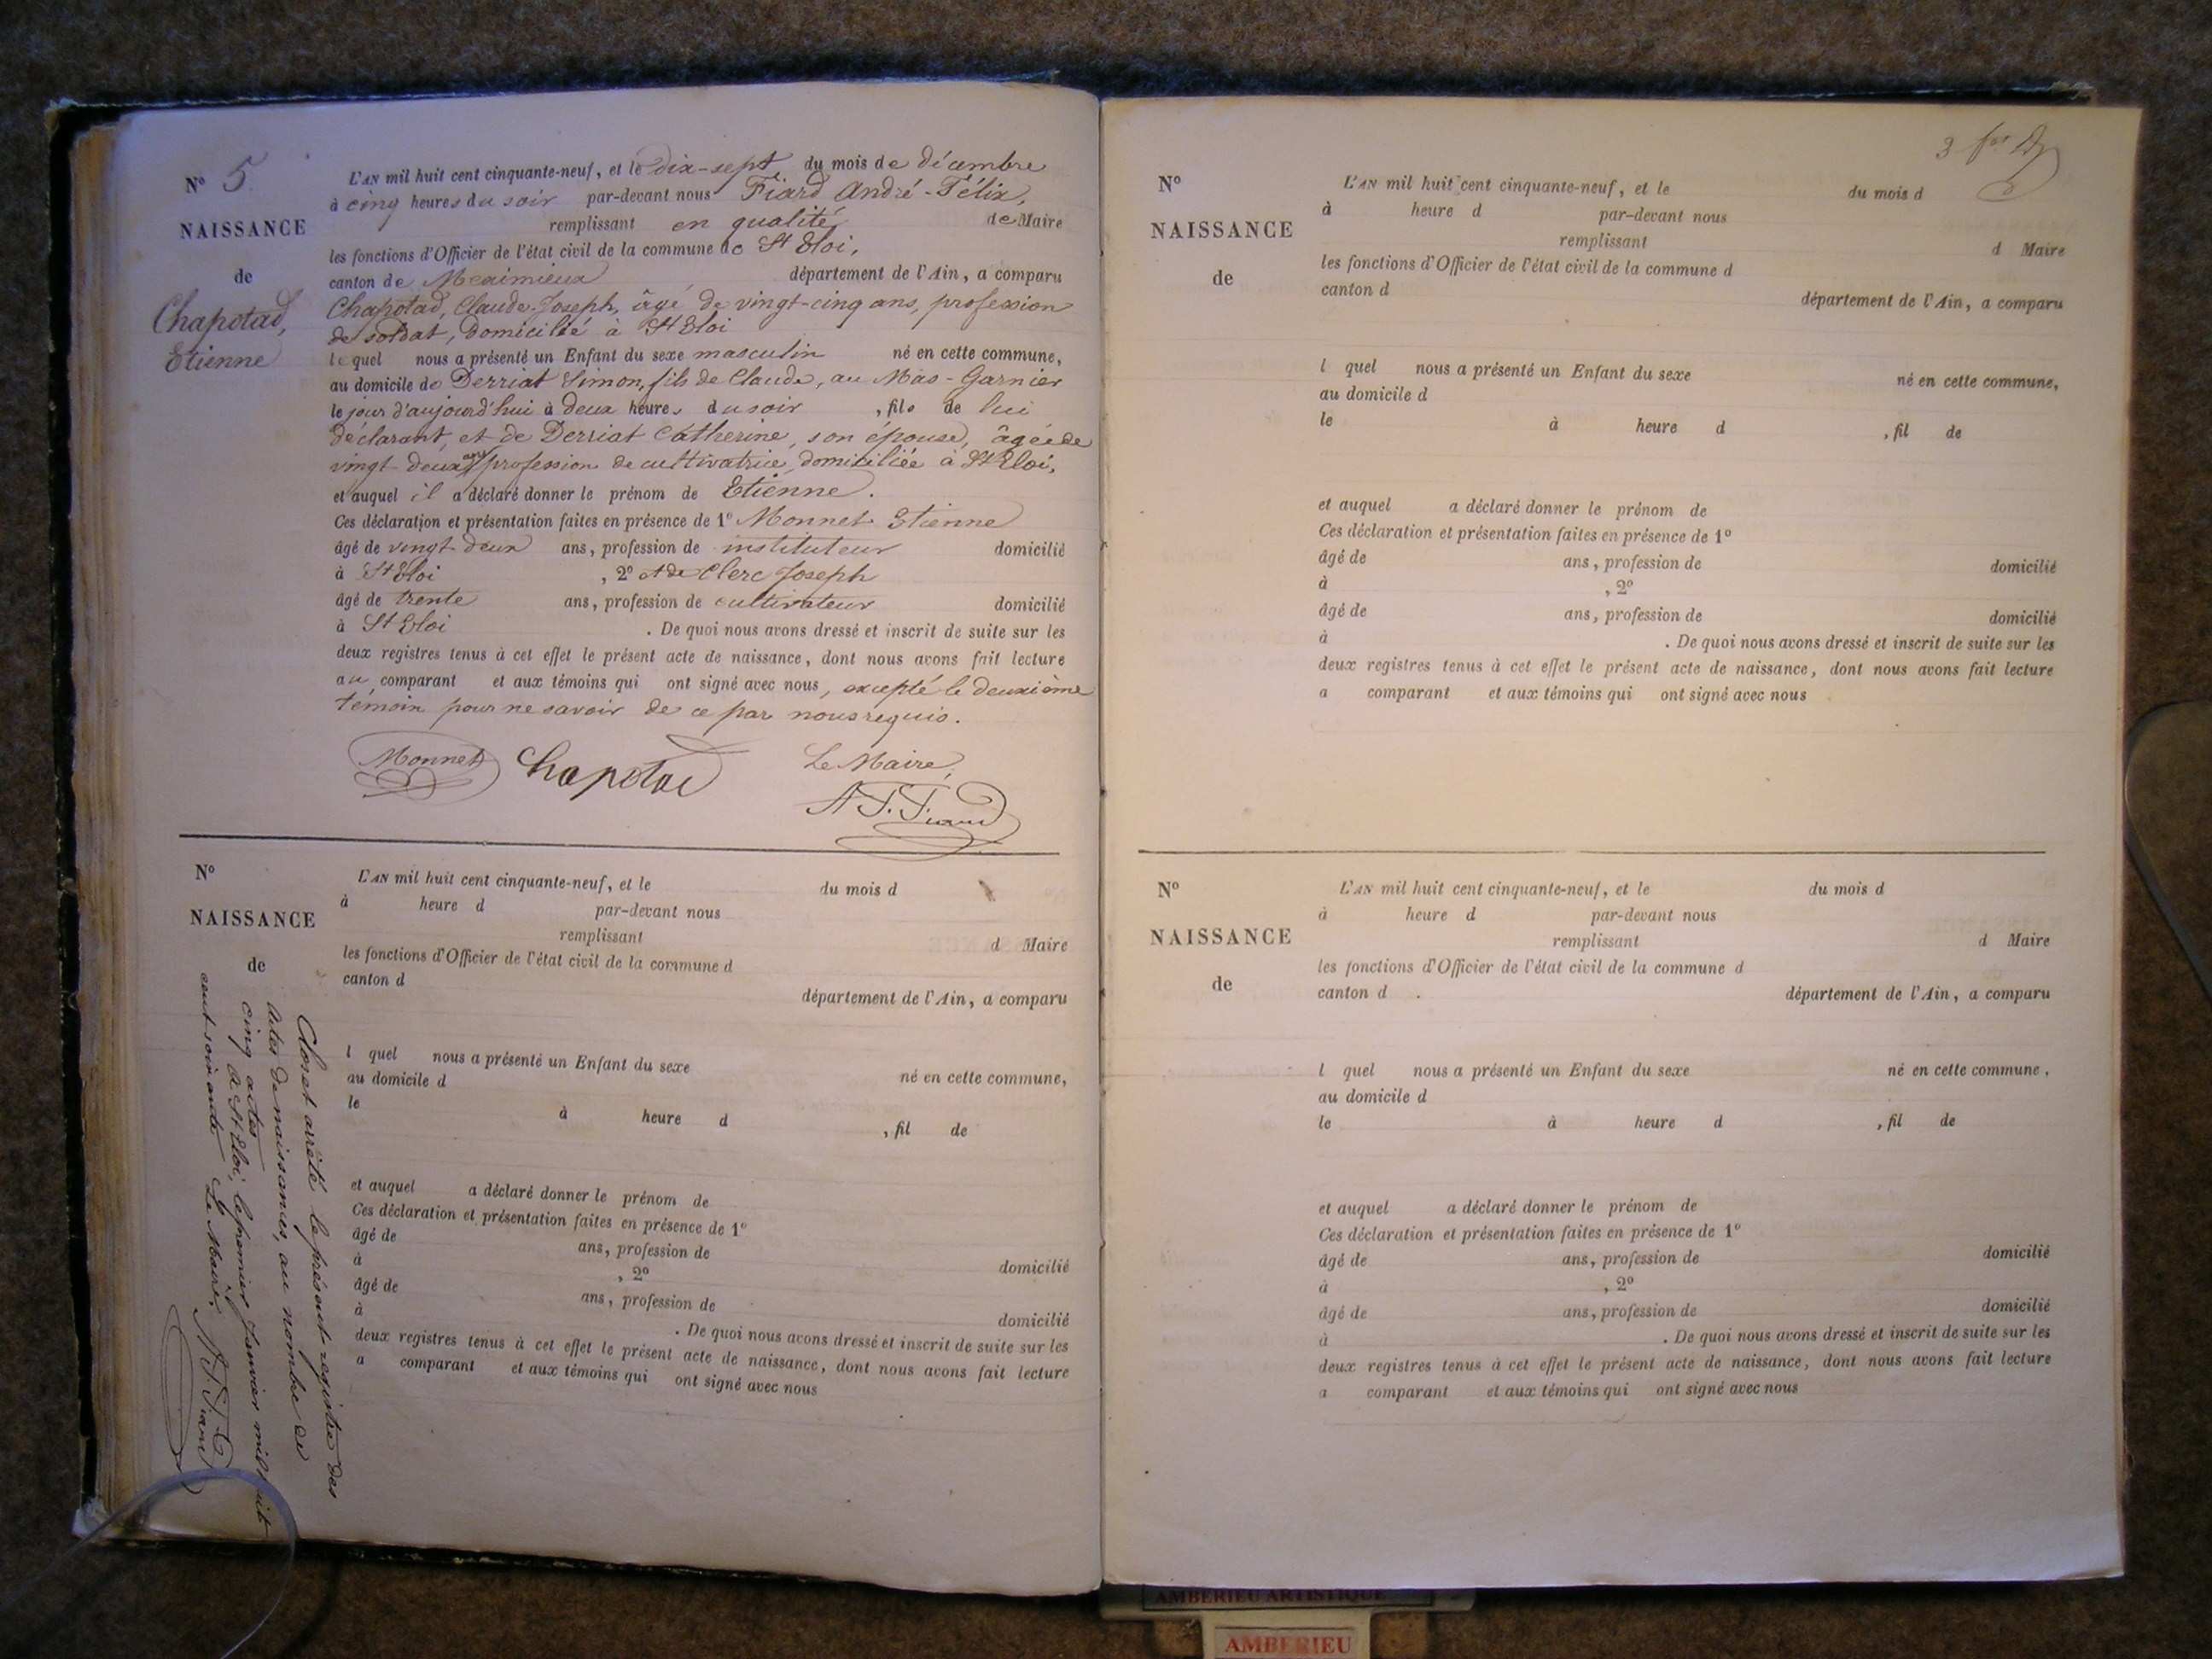 N° 5.
NAISSANCE
de
Chapotad,
Etienne
L'AN mil huit cent cinquante-neuf, et le dix-sept du mois de décembre
à cinq heures du soir par-devant nous Fiard André-Félix,
remplissant en qualité de Maire
les fonctions d'Officier de l'état civil de la commune de St Eloi,
canton de Meximieux département de l'Ain, a comparu
Chapotad, Claude-Joseph, âgé de vingt-cinq ans, profession
de soldat, domicilié à St Eloi
lequel nous a présenté un Enfant du sexe masculin né en cette commune,
au domicile de Derriat Simon, fils de Claude, au Mas-Garnier
le jour d'aujourd'hui à deux heures du soir , fils de lui
déclarant, et de Derriat Catherine, son épouse, âgée de
vingt-deux ans profession de cultivatrice, domiciliée à St Eloi,
et auquel il a déclaré donner le prénom de Etienne.
Ces déclaration et présentation faites en présence de 1° Monnet Etienne
âgé de vingt-deux ans, profession de instituteur domicilié
à St Eloi , 2° et de Clerc Joseph
âgé de trente ans, profession de cultivateur domicilié
à St Eloi . De quoi nous avons dressé et inscrit de suite sur les
deux registres tenus à cet effet le présent acte de naissance, dont nous avons fait lecture
au comparant et aux témoins qui ont signé avec nous, excepté le deuxième
témoin pour ne savoir de ce par nous requis.
Monnet Chapotad Le Maire,
A F. Fiard
N°
NAISSANCE
de
L'AN mil huit cent cinquante-neuf, et le du mois d
à heure d par-devant nous
remplissant d Maire
les fonctions d'Officier de l'état civil de la commune d
canton d département de l'Ain, a comparu
l quel nous a présenté un Enfant du sexe né en cette commune,
au domicile d
le à heure d , fil de
et auquel a déclaré donner le prénom de
Ces déclaration et présentation faites en présence de 1°
âgé de ans, profession de domicilié
à , 2°
âgé de ans, profession de domicilié
à . De quoi nous avons dressé et inscrit de suite sur les
deux registres tenus à cet effet le présent acte de naissance, dont nous avons fait lecture
a comparant et aux témoins qui ont signé avec nous
Clos et arrêté le présent registre des
actes de naissances, au nombre de
cinq actes
A St Eloi, le premier Janvier mil huit
cent soixante Le Maire,
A F. Fiard
3
N°
NAISSANCE
de
L'AN mil huit cent cinquante-neuf, et le du mois d
à heure d par-devant nous
remplissant d Maire
les fonctions d'Officier de l'état civil de la commune d
canton d département de l'Ain, a comparu
l quel nous a présenté un Enfant du sexe né en cette commune,
au domicile d
le à heure d , fil de
et auquel a déclaré donner le prénom de
Ces déclaration et présentation faites en présence de 1°
âgé de ans, profession de domicilié
à , 2°
âgé de ans, profession de domicilié
à . De quoi nous avons dressé et inscrit de suite sur les
deux registres tenus à cet effet le présent acte de naissance, dont nous avons fait lecture
a comparant et aux témoins qui ont signé avec nous
N°
NAISSANCE
de
L'AN mil huit cent cinquante-neuf, et le du mois d
à heure d par-devant nous
remplissant d Maire
les fonctions d'Officier de l'état civil de la commune d
canton d . département de l'Ain, a comparu
l quel nous a présenté un Enfant du sexe né en cette commune,
au domicile d
le à heure d , fil de
et auquel a déclaré donner le prénom de
Ces déclaration et présentation faites en présence de 1°
âgé de ans, profession de domicilié
à , 2°
âgé de ans, profession de domicilié
à . De quoi nous avons dressé et inscrit de suite sur les
deux registres tenus à cet effet le présent acte de naissance, dont nous avons fait lecture
a comparant et aux témoins qui ont signé avec nous
AMBERIEU ARTISTIQUE
AMBERIEU